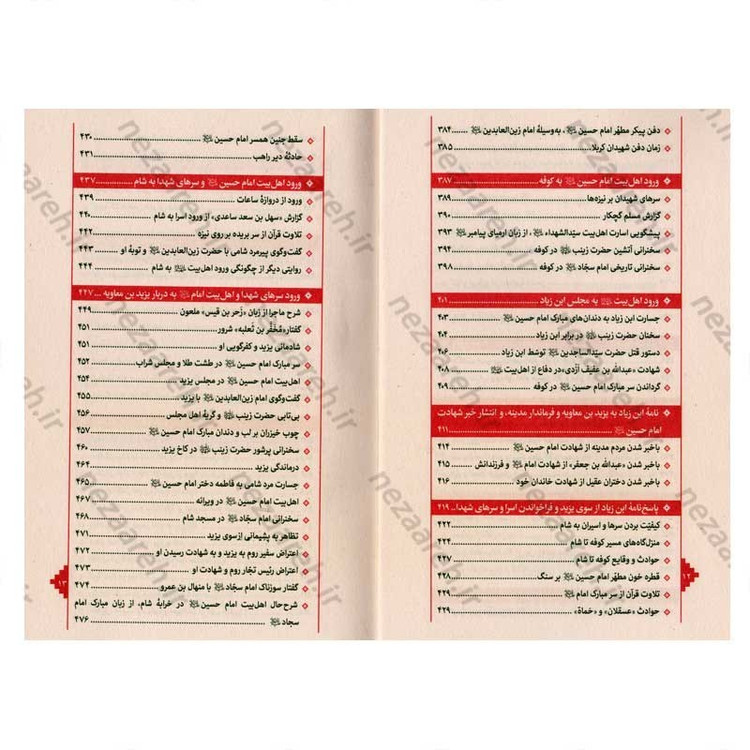 دفن پیکر مطهّر امام حسین ﷺ، به‌وسیلهٔ امام زین‌العابدین ﷺ ...... ۳۸۴
زمان دفن شهیدان کربلا ...... ۳۸۵
ورود اهل‌بیت امام حسین ﷺ به کوفه ...... ۳۸۷
سرهای شهیدان بر نیزه‌ها ...... ۳۸۹
گزارش مسلم گچکار ...... ۳۹۰
پیشگویی اسارت اهل‌بیت سیّدالشهداء ﷺ، از زبان ارمیای پیامبر ﷺ ۳۹۳
سخنرانی آتشین حضرت زینب ﷺ در کوفه ...... ۳۹۴
سخنرانی تاریخی امام سجّاد ﷺ در کوفه ...... ۳۹۸
ورود اهل‌بیت ﷺ به مجلس ابن زیاد ...... ۴۰۱
جسارت ابن زیاد به دندان‌های مبارک امام حسین ﷺ ...... ۴۰۳
سخنان حضرت زینب ﷺ در برابر ابن زیاد ...... ۴۰۴
دستور قتل حضرت سیّدالساجدین ﷺ توسط ابن زیاد ...... ۴۰۶
شهادت «عبدالله بن عفیف أزدی» در دفاع از اهل‌بیت ﷺ ...... ۴۰۸
گرداندن سر مبارک امام حسین ﷺ در کوفه ...... ۴۰۹
نامهٔ ابن زیاد به یزید بن معاویه و فرماندار مدینه، و انتشار خبر شهادت
امام حسین ﷺ ...... ۴۱۱
باخبر شدن مردم مدینه از شهادت امام حسین ﷺ ...... ۴۱۴
باخبر شدن «عبدالله بن جعفر» از شهادت امام ﷺ و فرزندانش ...... ۴۱۵
باخبر شدن دختران عقیل از شهادت خاندان خود ...... ۴۱۶
پاسخ‌نامهٔ ابن زیاد از سوی یزید و فراخواندن اسرا و سرهای شهدا ... ۴۱۹
کیفیّت بردن سرها و اسیران به شام ...... ۴۲۲
منزل‌گاه‌های مسیر کوفه تا شام ...... ۴۲۴
حوادث و وقایع کوفه تا شام ...... ۴۲۷
قطره خون مطهّر امام حسین ﷺ بر سنگ ...... ۴۲۸
تلاوت قرآن از سر مبارک امام ﷺ ...... ۴۲۹
حوادث «عسقلان» و «حماة» ...... ۴۲۹
۱۲
سقط جنین همسر امام حسین ﷺ ...... ۴۳۰
حادثهٔ دیر راهب ...... ۴۳۱
ورود اهل‌بیت امام حسین ﷺ و سرهای شهدا به شام ...... ۴۳۷
ورود از دروازهٔ ساعات ...... ۴۳۹
گزارش «سهل بن سعد ساعدی»، از ورود اسرا به شام ...... ۴۴۰
تلاوت قرآن از سر بریده بر روی نیزه ...... ۴۴۲
گفت‌وگوی پیرمرد شامی با حضرت زین‌العابدین ﷺ و توبهٔ او ...... ۴۴۳
روایتی دیگر از چگونگی ورود اهل‌بیت ﷺ به شام ...... ۴۴۴
ورود سرهای شهدا و اهل‌بیت امام ﷺ به دربار یزید بن معاویه ... ۴۴۷
شرح ماجرا از زبان «زَحر بن قیس» ملعون ...... ۴۴۹
گفتار «مُحَفِّر بن ثعلبه» شرور ...... ۴۵۱
شادمانی یزید و کفرگویی او ...... ۴۵۱
سر مبارک امام حسین ﷺ در طشت طلا و مجلس شراب ...... ۴۵۲
اهل‌بیت امام حسین ﷺ در مجلس یزید ...... ۴۵۴
گفت‌وگوی امام زین‌العابدین ﷺ با یزید ...... ۴۵۵
بی‌تابی حضرت زینب ﷺ و گریهٔ اهل مجلس ...... ۴۵۶
چوب خیزران بر لب و دندان مبارک امام حسین ﷺ ...... ۴۵۷
سخنرانی پرشور حضرت زینب ﷺ در کاخ یزید ...... ۴۶۰
درماندگی یزید ...... ۴۶۴
جسارت مرد شامی به فاطمه دختر امام حسین ﷺ ...... ۴۶۵
اهل‌بیت امام حسین ﷺ در ویرانه ...... ۴۶۷
سخنرانی امام سجّاد ﷺ در مسجد شام ...... ۴۶۸
تظاهر به پشیمانی ازسوی یزید ...... ۴۷۱
اعتراض سفیر روم به یزید و به شهادت رسیدن او ...... ۴۷۲
اعتراض رئیس تجّار روم و شهادت او ...... ۴۷۳
گفتار سوزناک امام سجّاد ﷺ با منهال بن عمرو ...... ۴۷۴
شرح‌حال اهل‌بیت امام حسین ﷺ در خرابهٔ شام، از زبان مبارک امام
سجاد ﷺ ...... ۴۷۶
۱۳
nezaareh.ir